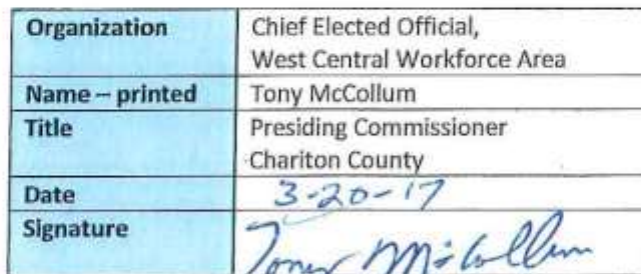 Organization Chief Elected Official,
West Central Workforce Area
Name – printed Tony McCollum
Title Presiding Commissioner
Chariton County
Date 3-20-17
Signature Tony McCollum